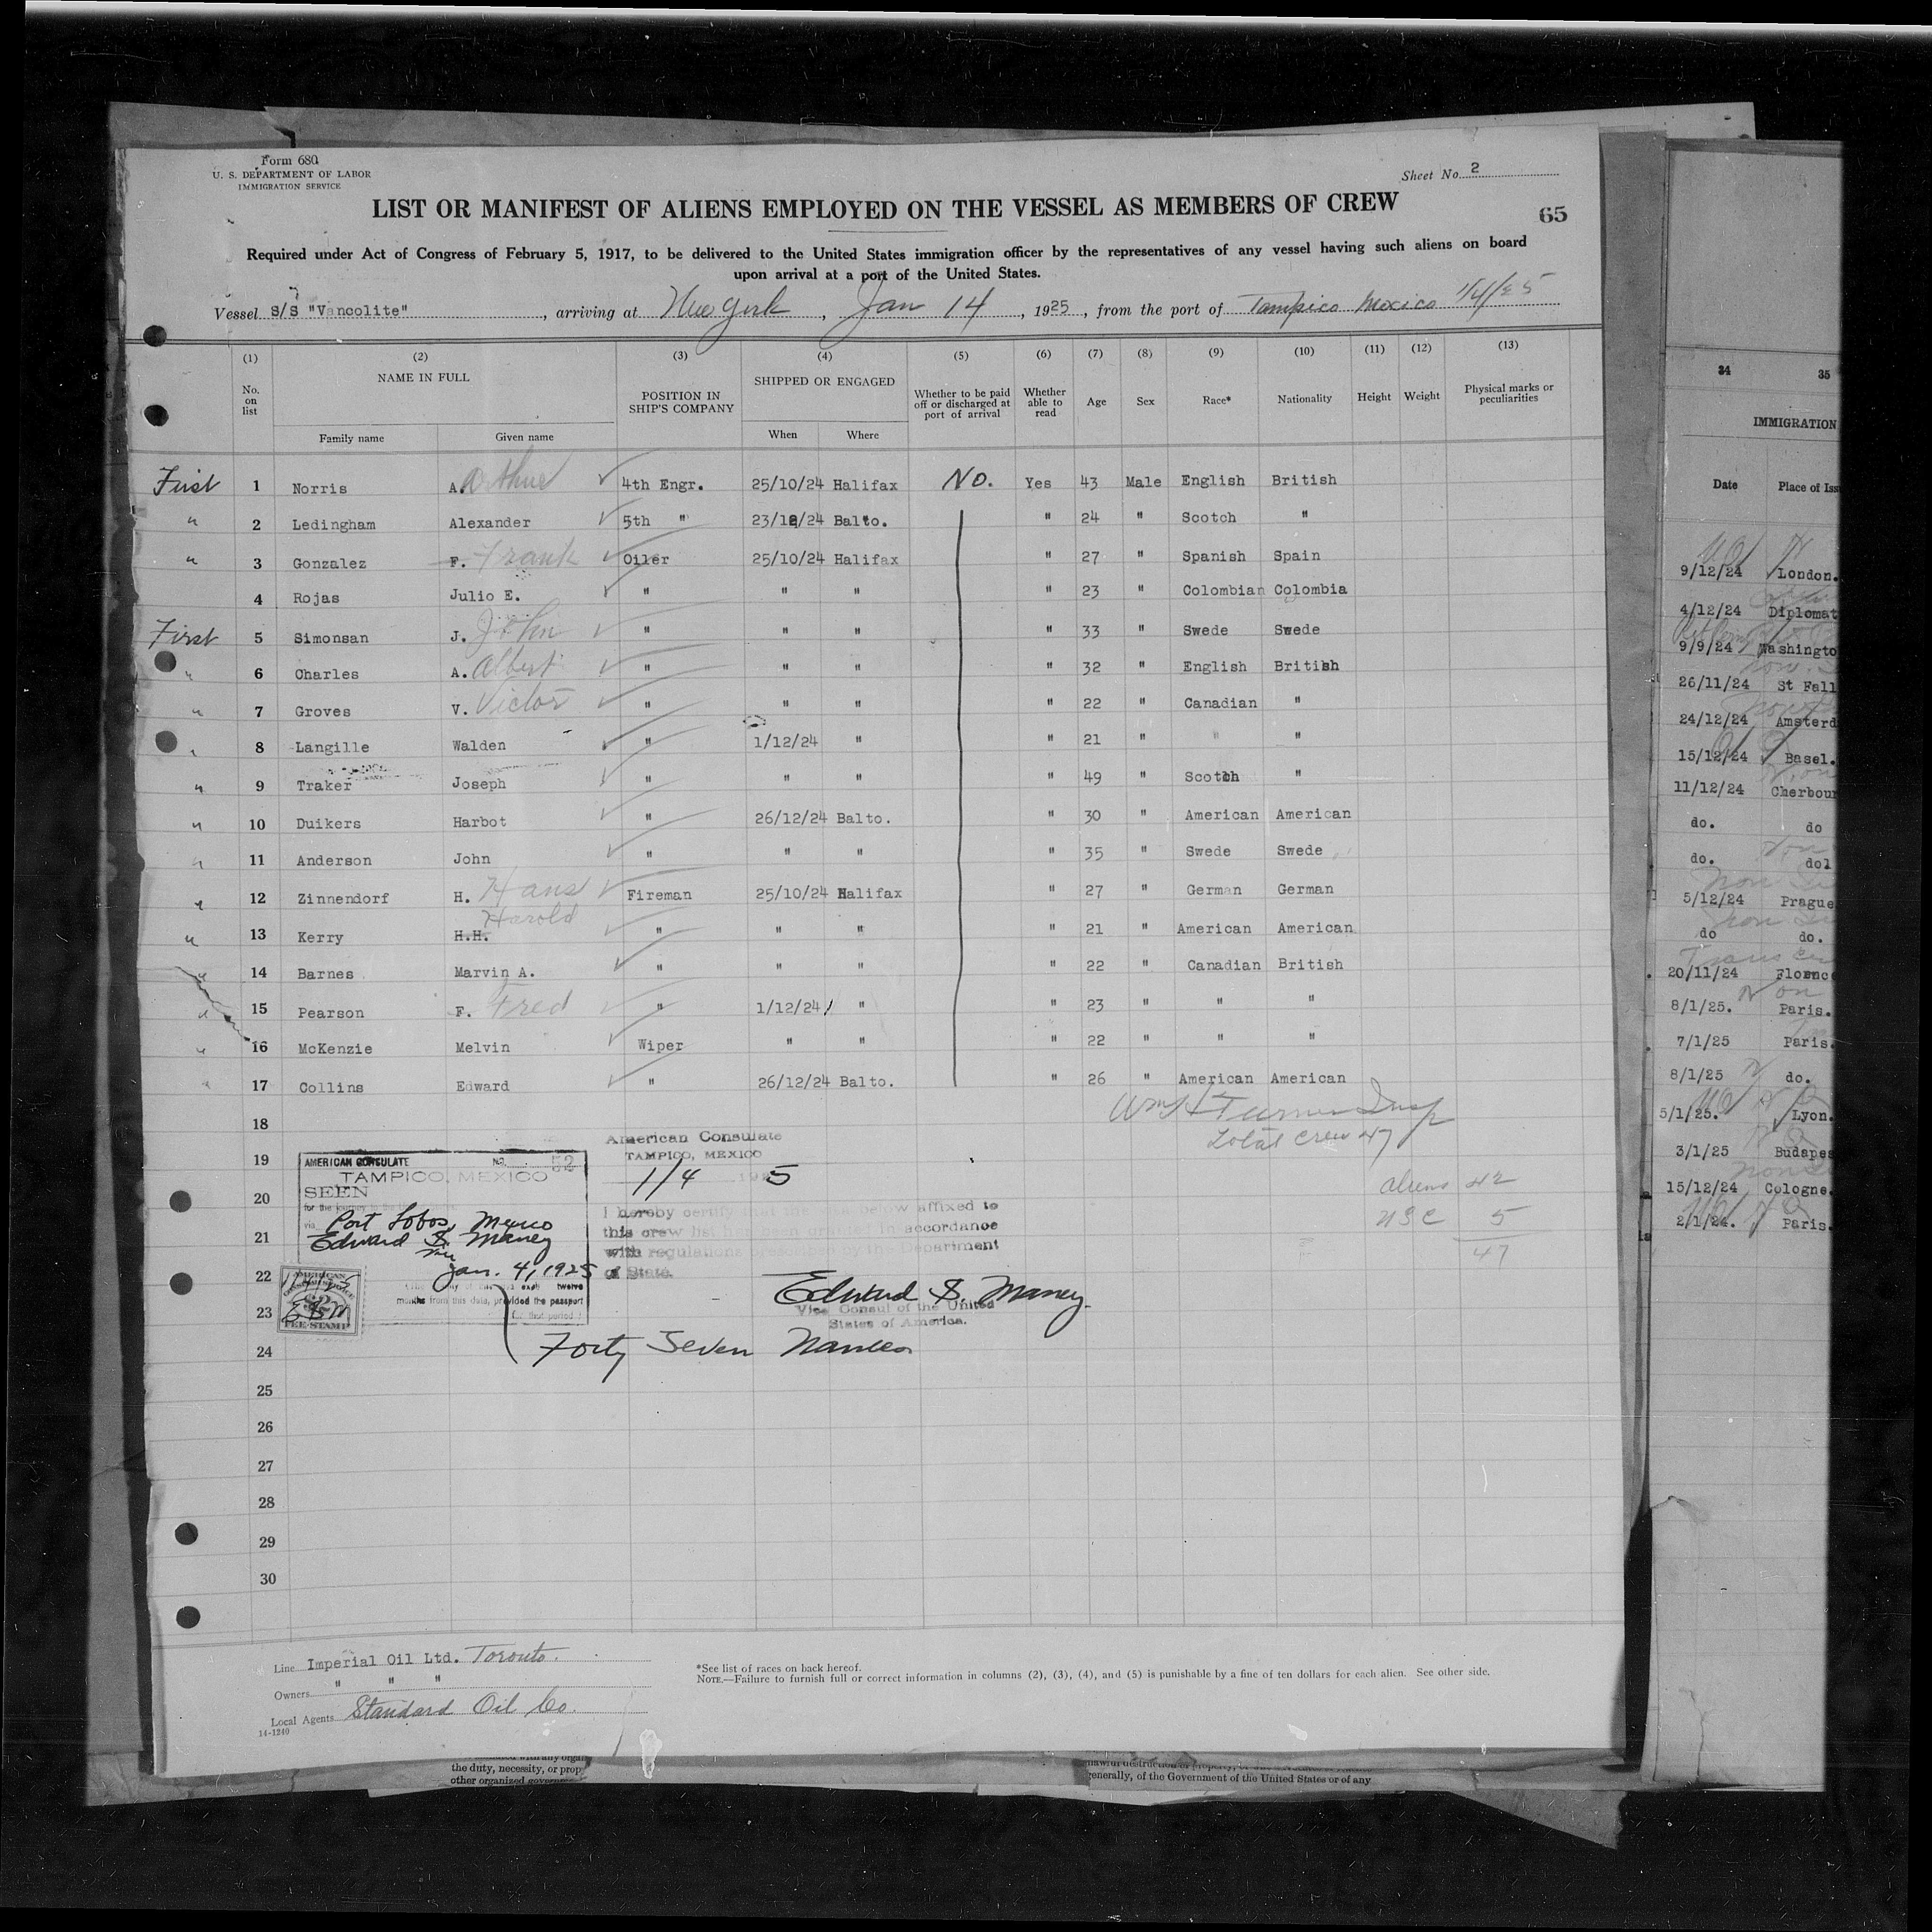 Form 680
U. S. DEPARTMENT OF LABOR
IMMIGRATION SERVICE
Sheet No. 2
LIST OR MANIFEST OF ALIENS EMPLOYED ON THE VESSEL AS MEMBERS OF CREW
65
Required under Act of Congress of February 5, 1917, to be delivered to the United States immigration officer by the representatives of any vessel having such aliens on board
upon arrival at a port of the United States.
Vessel S/S "Vancolite", arriving at New York, Jan 14, 1925, from the port of Tampico Mexico 1/4/25
(1) (2) (3) (4) (5) (6) (7) (8) (9) (10) (11) (12) (13)
No. on list NAME IN FULL POSITION IN SHIP'S COMPANY SHIPPED OR ENGAGED Whether to be paid off or discharged at port of arrival Whether able to read Age Sex Race* Nationality Height Weight Physical marks or peculiarities
Family name Given name When Where
First 1 Norris A. Arthur 4th Engr. 25/10/24 Halifax No. Yes 43 Male English British
" 2 Ledingham Alexander 5th " 23/12/24 Balto. " 24 " Scotch "
" 3 Gonzalez F. Frank Oiler 25/10/24 Halifax " 27 " Spanish Spain
4 Rojas Julio E. " " " " 23 " Colombian Colombia
First 5 Simonsan J. John " " " " 33 " Swede Swede
" 6 Charles A. Albert " " " " 32 " English British
" 7 Groves V. Victor " " " " 22 " Canadian "
" 8 Langille Walden " 1/12/24 " " 21 " " "
" 9 Traker Joseph " " " " 49 " Scotch "
" 10 Duikers Harbot " 26/12/24 Balto. " 30 " American American
" 11 Anderson John " " " " 35 " Swede Swede
" 12 Zinnendorf H. Hans Fireman 25/10/24 Halifax " 27 " German German
" 13 Kerry H.H. Harold " " " " 21 " American American
" 14 Barnes Marvin A. " " " " 22 " Canadian British
" 15 Pearson F. Fred " 1/12/24 " " 23 " " "
" 16 McKenzie Melvin Wiper " " " 22 " " "
" 17 Collins Edward " 26/12/24 Balto. " 26 " American American
18
Wm H Turner Insp
Total crew 47
19
20
21
22
23
24
25
26
27
28
29
30
aliens 42
USC 5
47
AMERICAN CONSULATE No. 52
TAMPICO, MEXICO
SEEN
for the journey to the
via Port Lobos, Mexico
Edward S. Maney
Jan. 4, 1925
twelve
months from this date, provided the passport
for that period
AMERICAN
1/4/25
ESM
FEE STAMP
American Consulate
TAMPICO, MEXICO
1/4 1925
I hereby certify that the visa below affixed to
this crew list in accordance
with regulations prescribed by the Department
of State.
Edward S. Maney.
Vice Consul of the United
States of America.
Forty Seven Names
Line Imperial Oil Ltd. Toronto.
Owners " " "
Local Agents Standard Oil Co.
14-1240
*See list of races on back hereof.
NOTE.—Failure to furnish full or correct information in columns (2), (3), (4), and (5) is punishable by a fine of ten dollars for each alien. See other side.
34 35
IMMIGRATION
Date Place of Iss
9/12/24 London.
4/12/24 Diplomat
9/9/24 Washingto
26/11/24 St Fall
24/12/24 Amsterd
15/12/24 Basel.
11/12/24 Cherbour
do. do
do. do
5/12/24 Prague
do do.
20/11/24 Florenc
8/1/25. Paris.
7/1/25 Paris.
8/1/25 do.
5/1/25. Lyon.
3/1/25 Budapes
15/12/24 Cologne.
2/1/24. Paris.
the duty, necessity, or prop
other organized government
generally, of the Government of the United States or of any